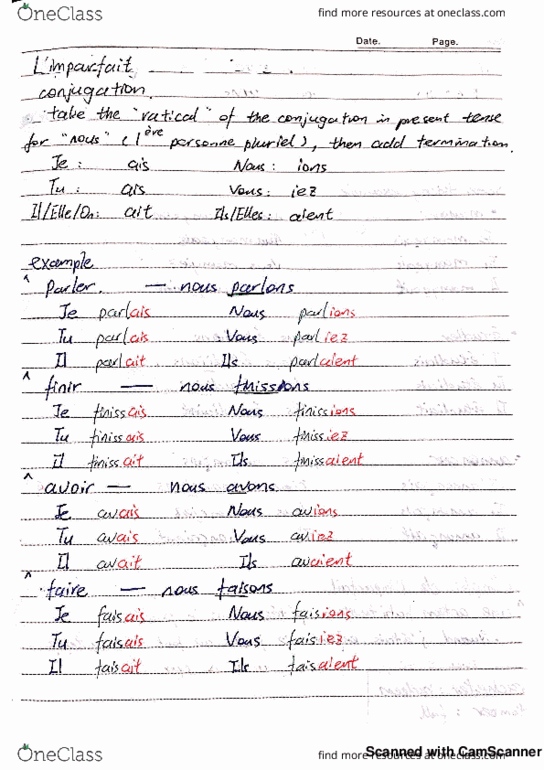 OneClass find more resources at oneclass.com
Date. Page.
L'imparfait
conjugation.
take the "ratical" of the conjugation in present tense
for "nous" (1ère personne pluriel), then add termination.
Je : ais Nous : ions
Tu : ais Vous : iez
Il/Elle/On: ait Ils/Elles: aient
example
^ parler. — nous parlons
Je parlais Nous parlions
Tu parlais Vous parliez
Il parlait Ils parlaient
^ finir — nous finissons
Je finissais Nous finissions
Tu finissais Vous finissiez
Il finissait Ils finissaient
^ avoir — nous avons.
Je avais Nous avions
Tu avais Vous aviez
Il avait Ils avaient
^ faire — nous faisons
Je faisais Nous faisions
Tu faisais Vous faisiez
Il faisait Ils faisaient
OneClass find more resources at oneclass.com
Scanned with CamScanner